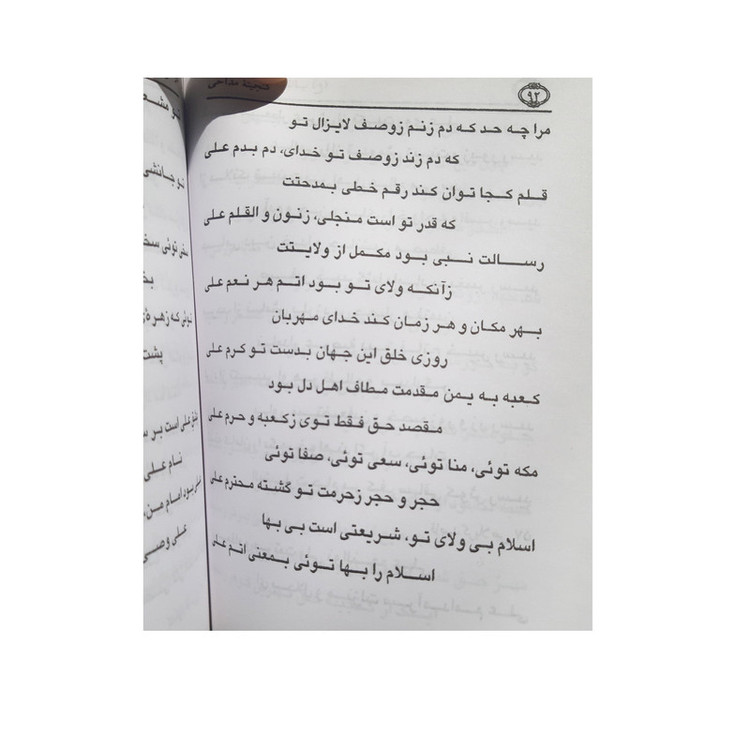 ۹۲
مداحی
مرا چه حد که دم زنم زوصف لایزال تو
که دم زند زوصف تو خدای، دم بدم علی
قلم کجا توان کند رقم خطی بمدحتت
که قدر تو است منجلی، زنون و القلم علی
رسالت نبی بود مکمل از ولایتت
زآنکه ولای تو بود اتم هر نعم علی
بهر مکان و هر زمان کند خدای مهربان
روزی خلق این جهان بدست تو کرم علی
کعبه به یمن مقدمت مطاف اهل دل بود
مقصد حق فقط توی زکعبه و حرم علی
مکه توئی، منا توئی، سعی توئی، صفا توئی
حجر و حجر زحرمت تو گشته محترم علی
اسلام بی ولای تو، شریعتی است بی بها
اسلام را بها توئی بمعنی اتم علی
سخی توئی سخ
توئی که زهره‌ی
پشت
علی است بر س
نام علی
بود امام من،
علی وصی